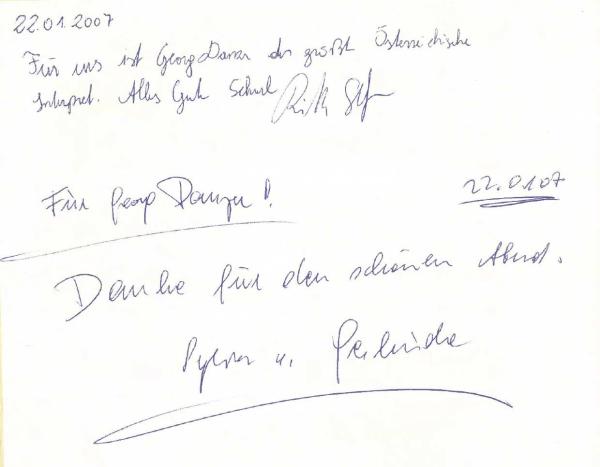 22.01.2007
Für uns ist Georg Danzer der größte Österreichische
Interpret. Alles Gute Schurl
Für Georg Danzer!
22.01.07
Danke für den schönen Abend.
Sylvia u. Gerlinde